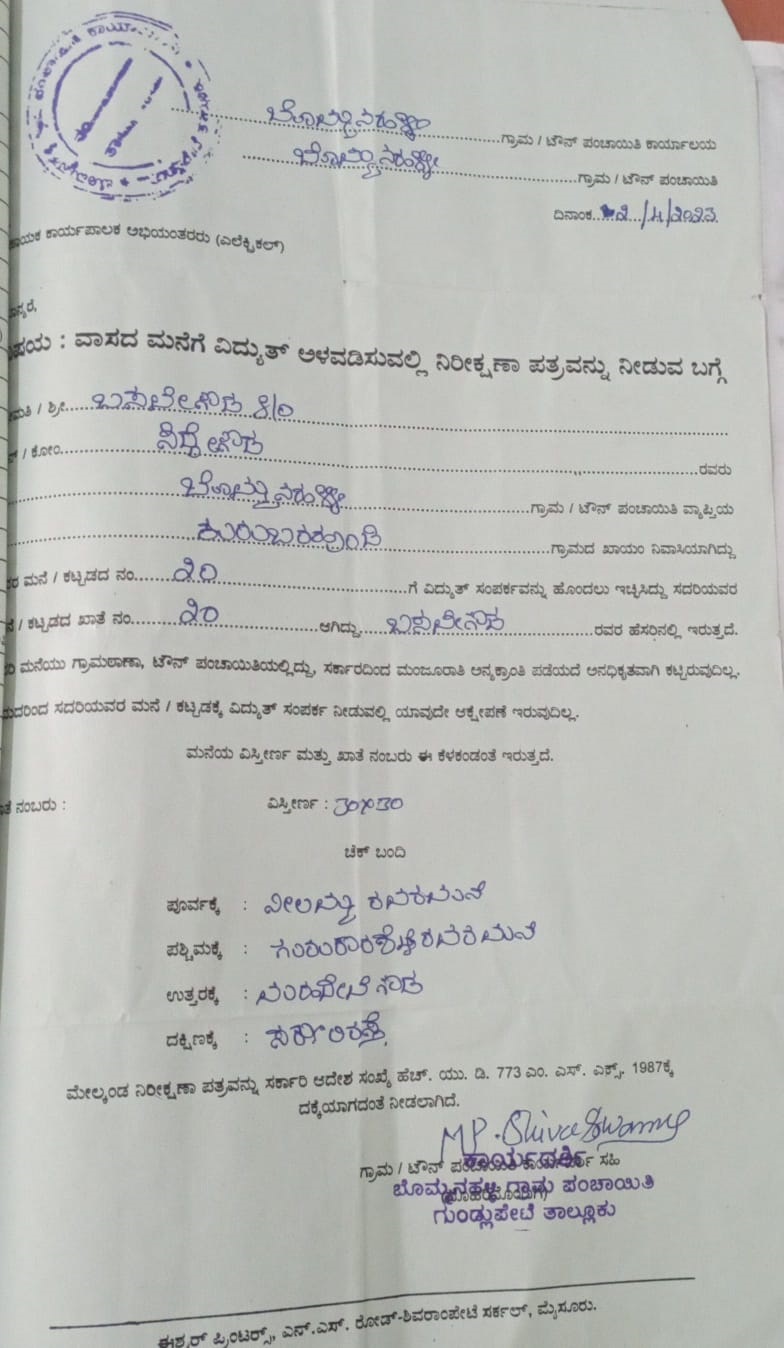 ಬೊಮ್ಮನಹಳ್ಳಿ ಗ್ರಾಮ / ಟೌನ್ ಪಂಚಾಯಿತಿ ಕಾರ್ಯಾಲಯ
ಬೊಮ್ಮನಹಳ್ಳಿ ಗ್ರಾಮ / ಟೌನ್ ಪಂಚಾಯಿತಿ
ದಿನಾಂಕ
ಾಯಕ ಕಾರ್ಯಪಾಲಕ ಅಭಿಯಂತರರು (ಎಲೆಕ್ಟ್ರಿಕಲ್)
ನ್ಯರೆ,
ಷಯ : ವಾಸದ ಮನೆಗೆ ವಿದ್ಯುತ್ ಅಳವಡಿಸುವಲ್ಲಿ ನಿರೀಕ್ಷಣಾ ಪತ್ರವನ್ನು ನೀಡುವ ಬಗ್ಗೆ
ಮತಿ / ಶ್ರೀ ಬಸವೇಗೌಡ S/O
/ ಕೋಂ ಸಿದ್ದೇಗೌಡ ರವರು
ಬೊಮ್ಮನಹಳ್ಳಿ ಗ್ರಾಮ / ಟೌನ್ ಪಂಚಾಯಿತಿ ವ್ಯಾಪ್ತಿಯ
ಕುರುಬರಹುಂಡಿ ಗ್ರಾಮದ ಖಾಯಂ ನಿವಾಸಿಯಾಗಿದ್ದು
ರ ಮನೆ / ಕಟ್ಟಡದ ನಂ ೨೦ ಗೆ ವಿದ್ಯುತ್ ಸಂಪರ್ಕವನ್ನು ಹೊಂದಲು ಇಚ್ಛಿಸಿದ್ದು ಸದರಿಯವರ
ನೆ / ಕಟ್ಟಡದ ಖಾತೆ ನಂ ೨೦ ಆಗಿದ್ದು, ಬಸವೇಗೌಡ ರವರ ಹೆಸರಿನಲ್ಲಿ ಇರುತ್ತದೆ.
ರಿ ಮನೆಯು ಗ್ರಾಮಠಾಣಾ, ಟೌನ್ ಪಂಚಾಯಿತಿಯಲ್ಲಿದ್ದು, ಸರ್ಕಾರದಿಂದ ಮಂಜೂರಾತಿ ಅನ್ಯಕ್ರಾಂತಿ ಪಡೆಯದೆ ಅನಧಿಕೃತವಾಗಿ ಕಟ್ಟಿರುವುದಿಲ್ಲ.
ುದರಿಂದ ಸದರಿಯವರ ಮನೆ / ಕಟ್ಟಡಕ್ಕೆ ವಿದ್ಯುತ್ ಸಂಪರ್ಕ ನೀಡುವಲ್ಲಿ ಯಾವುದೇ ಆಕ್ಷೇಪಣೆ ಇರುವುದಿಲ್ಲ.
ಮನೆಯ ವಿಸ್ತೀರ್ಣ ಮತ್ತು ಖಾತೆ ನಂಬರು ಈ ಕೆಳಕಂಡಂತೆ ಇರುತ್ತದೆ.
ತೆ ನಂಬರು : ವಿಸ್ತೀರ್ಣ : 30x30
ಚೆಕ್ ಬಂದಿ
ಪೂರ್ವಕ್ಕೆ : ನೀಲಮ್ಮ ರವರಮನೆ
ಪಶ್ಚಿಮಕ್ಕೆ :
ಉತ್ತರಕ್ಕೆ :
ದಕ್ಷಿಣಕ್ಕೆ : ಸರ್ಕಾರಿರಸ್ತೆ
ಮೇಲ್ಕಂಡ ನಿರೀಕ್ಷಣಾ ಪತ್ರವನ್ನು ಸರ್ಕಾರಿ ಆದೇಶ ಸಂಖ್ಯೆ ಹೆಚ್. ಯು. ಡಿ. 773 ಎಂ. ಎಸ್. ಎಕ್ಸ್. 1987ಕ್ಕೆ
ದಕ್ಕೆಯಾಗದಂತೆ ನೀಡಲಾಗಿದೆ.
MP. Shivaswamy
ಗ್ರಾಮ / ಟೌನ್ ಪಂಚಾಯಿತಿ ಸಹಿ
ಕಾರ್ಯದರ್ಶಿ
ಬೊಮ್ಮನಹಳ್ಳಿ ಗ್ರಾಮ ಪಂಚಾಯಿತಿ
ಗುಂಡ್ಲುಪೇಟೆ ತಾಲ್ಲೂಕು
ಈಶ್ವರ್ ಪ್ರಿಂಟರ್ಸ್, ಎನ್.ಎಸ್. ರೋಡ್-ಶಿವರಾಂಪೇಟೆ ಸರ್ಕಲ್, ಮೈಸೂರು.